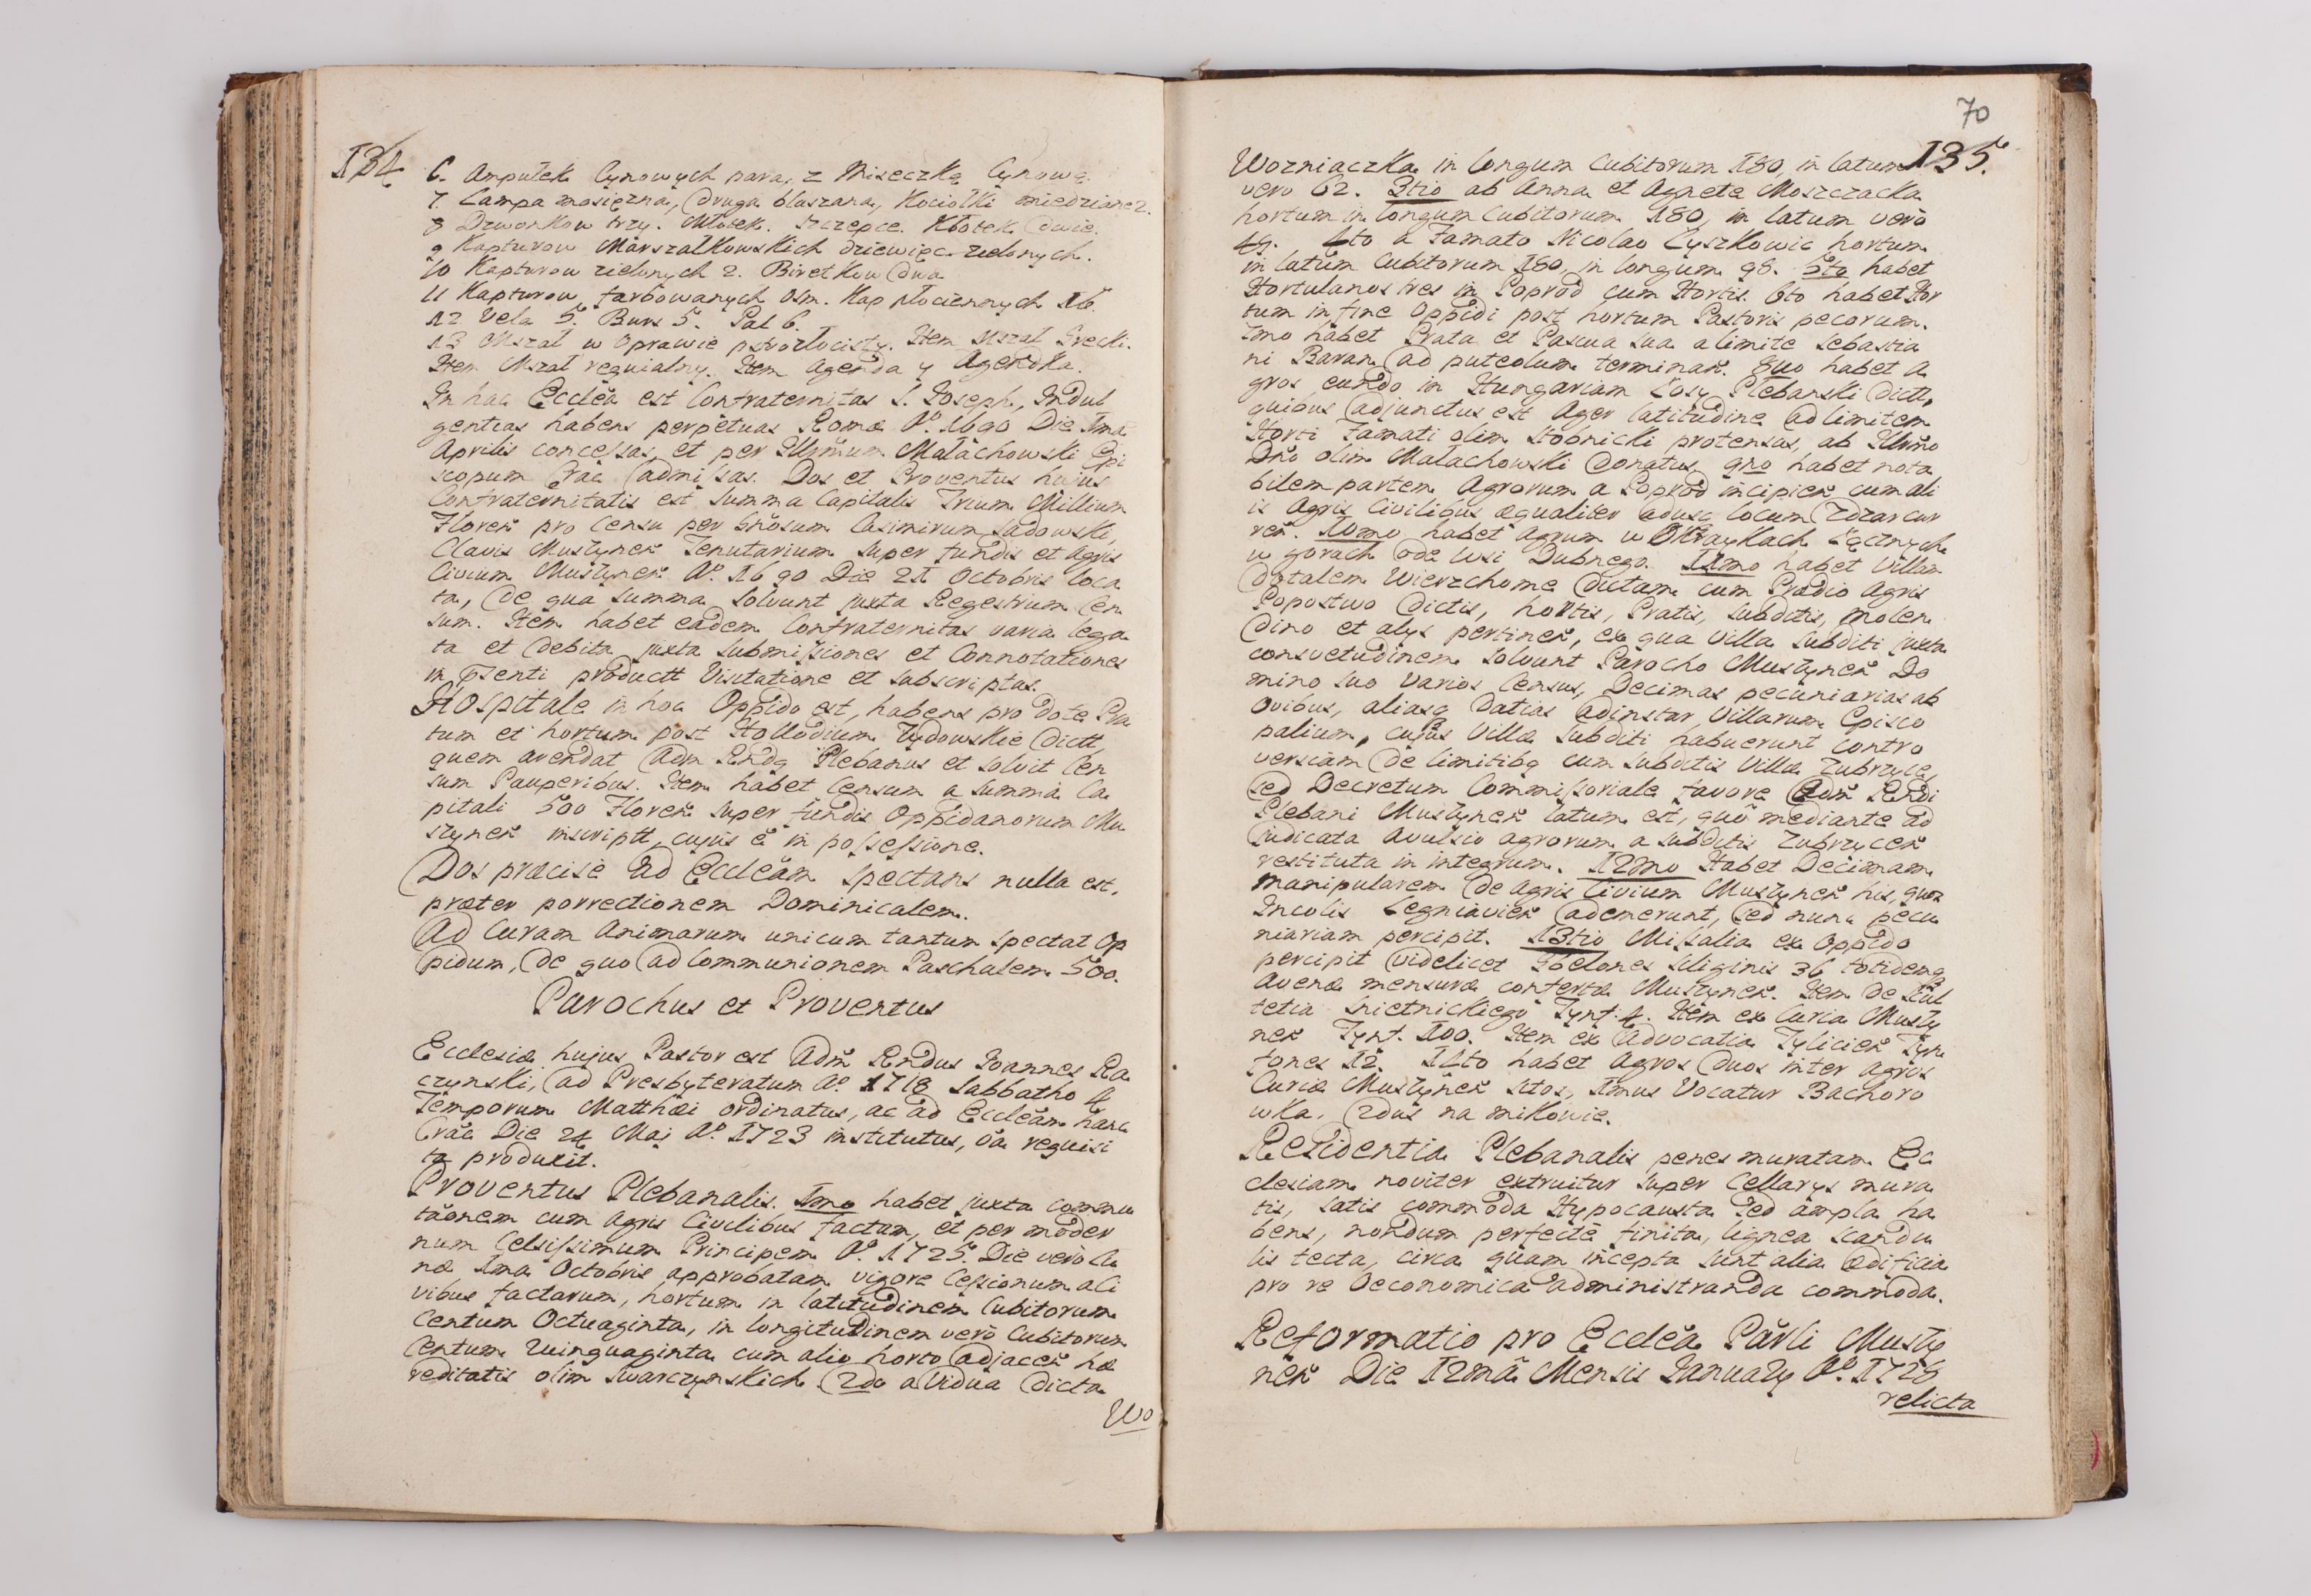 134
6. Ampułek Cynowych para, z Miseczką Cynową.
7 Lampa mosiężna, druga blaszana, Kociołki miedziane 2.
8 Dzwonkow trzy. Młotek. Szczepce. Kłotek dwie.
9 Kapturow Marszałkowskich dziewięc zielonych.
10 Kapturow zielonych 2. Biretkow dwa
11 Kapturow farbowanych Osm. Kap płociennych 16.
12 Vela 5. Burs 5. Pal 6.
13 Mszał w Oprawie pstrozłocisty. Item Mszał Grecki.
Item Mszał requialny. Item Agenda y Agendka.
In hac Eccleã est Confraternitas S. Joseph, Indul
gentias habens perpetuas Romæ Aº. 1690 Die 1ma
Aprilis concessas, et per Illrmum Małachowski Epi
scopum Crac admissas. Dos et Proventus hujus
Confraternitatis est Summa Capitalis Trium Millium
Floren pro Censu per Gnosum Casimirum Sadowski,
Clavis Muszynen Tenutarium super fundis et Agris
Civium Muszynen Aº. 1690 Die 21 Octobris loca
ta, de qua summa solvunt juxta Regestrum Cen
sum. Item habet eadem Confraternitas varia lega
ta et debita juxta submissiones et Connotationes
in pñsenti productt Visitatione et subscriptas.
Hospitale in hoc Oppido est, habens pro dote Pra
tum et hortum post Hollodium Zydowskie dictt,
quem arendat Adm Rndq Plebanus et solvit Cen
sum Pauperibus. Item habet Censum a summa Ca
pitali 500 Floren super fundis Oppidanorum Mu
szynen inscriptt, cujus ē in possessione.
Dos præcise ad Eccleãm spectans nulla est,
præter porrectionem Dominicalem.
Ad Curam Animarum unicum tantum spectat Op
pidum, de quo ad Communionem Paschalem 500.
Parochus et Proventus
Ecclesiæ hujus Pastor est Adm Rndus Joannes Ra
czynski, ad Presbyteratum Aº 1718 Sabbatho 4
Temporum Matthæi ordinatus, ac ad Eccleãm hanc
Crac Die 24 Maj Aº. 1723 institutus, õa requisi
ta produxit.
Proventus Plebanalis. 1mo habet juxta commu
tãonem cum Agris Civilibus factam, et per moder
num Celsissimum Principem Aº. 1725 Die vero Lu
næ 1ma Octobris approbatam vigore Cessionum a Ci
vibus factarum, hortum in latitudinem Cubitorum
Centum Octuaginta, in longitudinem vero Cubitorum
Centum Quinquaginta cum alio horto adjacen hæ
reditatis olim Swarczynskich 2do a Vidua dicta
Wo
70
135.
Wozniaczka in longum Cubitorum 180, in latum
vero 62. 3tio ab Anna et Agneta Moszczacka
hortum in longum Cubitorum 180, in latum vero
49. 4to a Famato Nicolao Łyszkowic hortum
in latum Cubitorum 180, in longum 98. 5to habet
Hortulanos tres in Poprod cum Hortis. 6to habet Hor
tum in fine Oppidi post hortum Pastoris pecorum.
7mo habet Prata et Pascua sua a limite Sebastia
ni Baran ad puteolum terminan. 8vo habet A
gros eundo in Hungariam Łosy Plebanski dictt,
quibus adjunctus est Ager latitudine ad limitem
Horti Famati olim Stobnicki protensus, ab Illrmo
Dño olim Małachowski donatus, 9no habet nota
bilem partem Agrorum a Poprod incipien cum ali
is Agris Civilibus æqualiter adusq locum Zdzar cur
ren. 10mo habet Agrum w Okraykach Łęcznych
w gorach ode wsi Dubnego. 11mo habet Villam
dotalem Wierzchome dictam cum Prædio Agris
Popostwo dictis, hortis, Pratis, Subditis, molen
dino et alys pertinen, ex qua Villa Subditi juxta
consvetudinem solvunt Parocho Muszynen Do
mino suo varios Census, Decimas pecuniarias ab
Ovibus, aliasq Datias adinstar Villarum Episco
palium, cujus Villæ Subditi habuerunt Contro
versiam de limitibq cum Subditis Villæ Zubrzyce,
sed Decretum Commissoriale favore Adm Rndi
Plebani Muszynen latum est, quô mediante ad
judicata avulsio agrorum a Subditis Zubrzycen
restituta in integrum. 12mo Habet Decimam
manipularem de Agris Civium Muszynen his, quos
Incolis Legniavien ademerunt, sed nunc pecu
niariam percipit. 13tio Missalia ex Oppido
percipit videlicet Goelones Siliginis 36 totidemq
Avenæ mensuræ confertæ Muszynen. Item de Scul
tetia Snietnickiego Tynf. 4. Item ex Curia Muszy
nen Tynf. 100. Item ex Advocatia Tylicien Tyn
fones 12. 14to habet Agros duos inter Agros
Curiæ Muszynen sitos, 1mus Vocatur Bachoro
wka, 2dus na mikowie.
Residentia Plebanalis penes muratam Ec
clesiam noviter extruitur super Cellarys mura
tis, satis commoda Hypocausta sed ampla ha
bens, nondum perfectè finita, lignea scandu
lis tecta, circa quam incepta sunt alia ædificia
pro re Oeconomica administranda commoda.
Reformatio pro Eccleã Pãrli Muszy
nen Die 12mâ Mensis January Aº. 1728
relicta